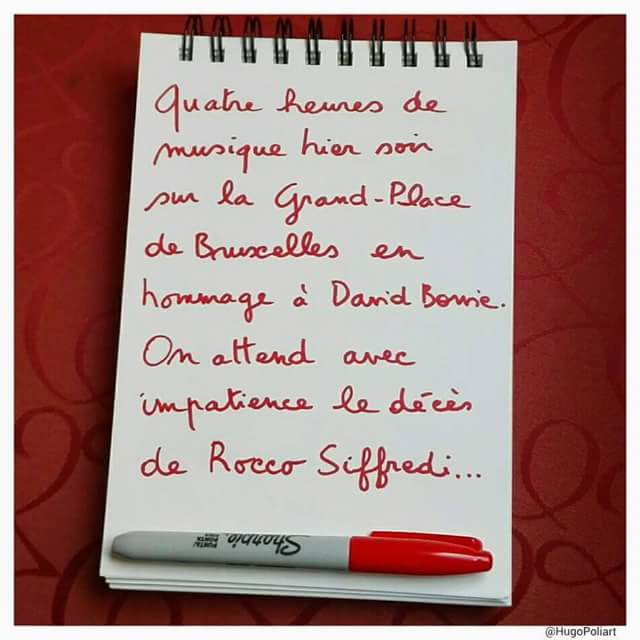 Quatre heures de
musique hier soir
sur la Grand-Place
de Bruxelles en
hommage à David Bowie.
On attend avec
impatience le décès
de Rocco Siffredi...
Sharpie
@HugoPoliart